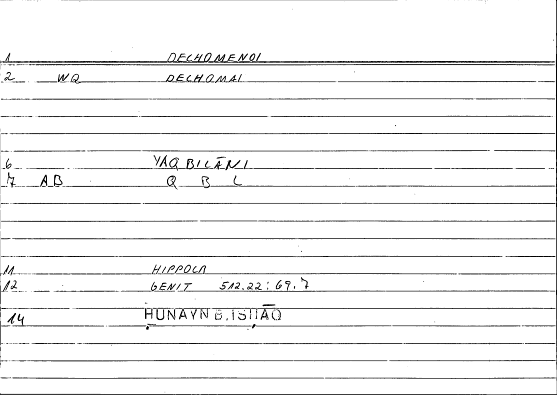 1 DECHOMENOI
2 WQ DECHOMAI
6 YAQBILĀNI
7 AB Q B L
11 HIPPOCR
12 GENIT 512.22:69,7
14 ḤUNAYN B. ISḤĀQ